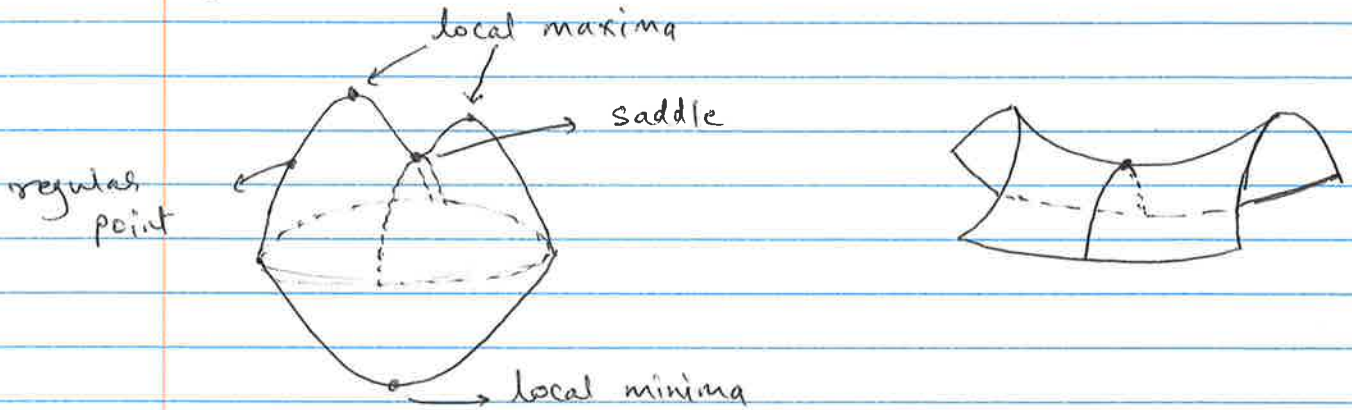 local maxima
saddle
regular
point
local minima